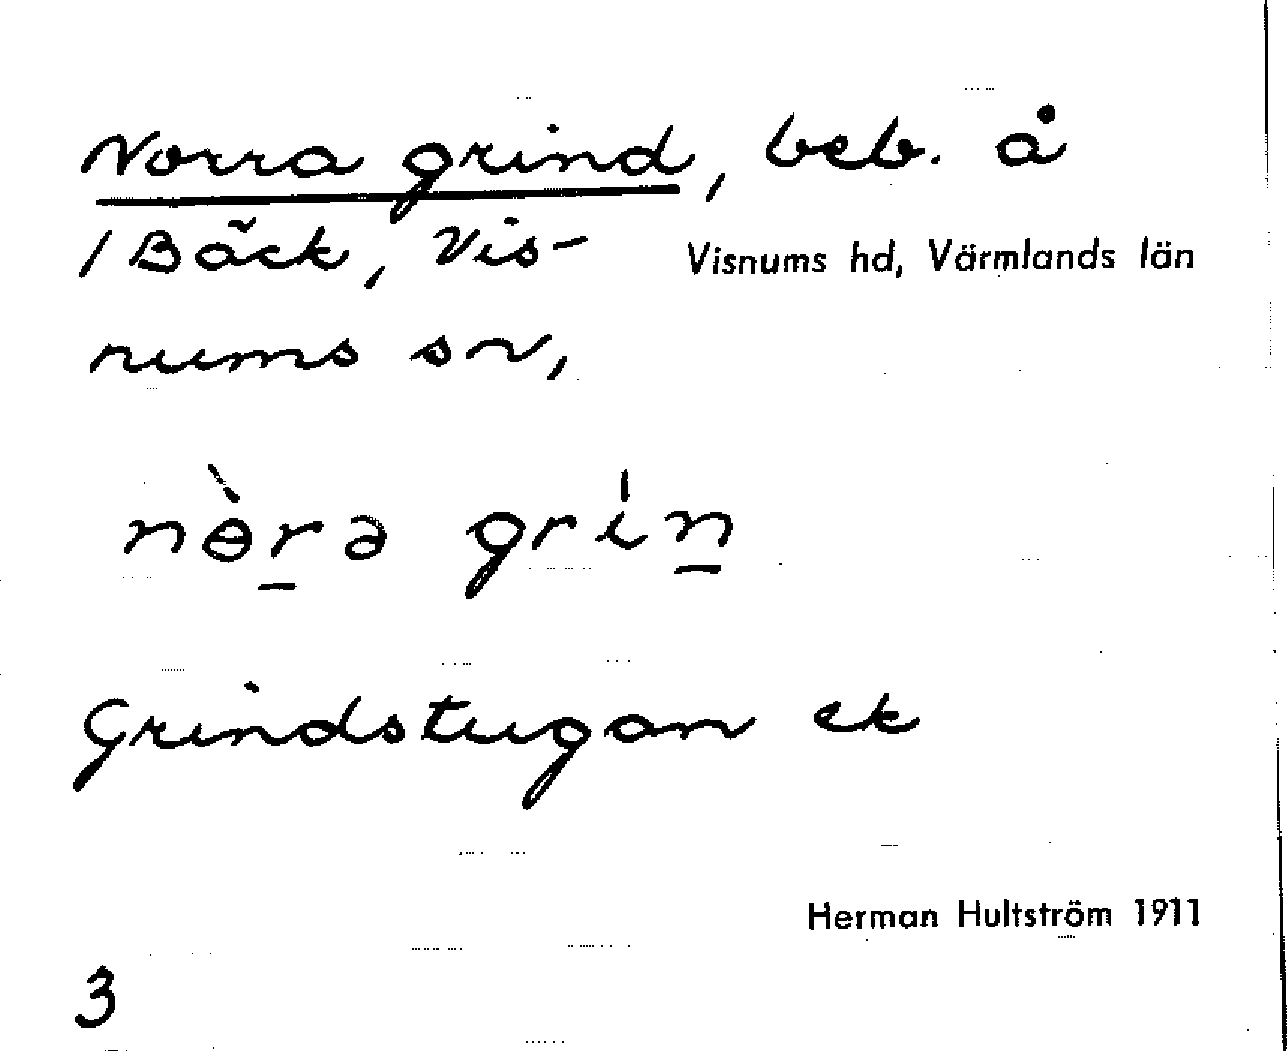 Norra grind, beb. å
/Bäck, Vis-
Visnums hd, Värmlands län
nums sn,
nɵ̀r̠ə grín̠
Grindstugan ek
Herman Hultström 1911
3